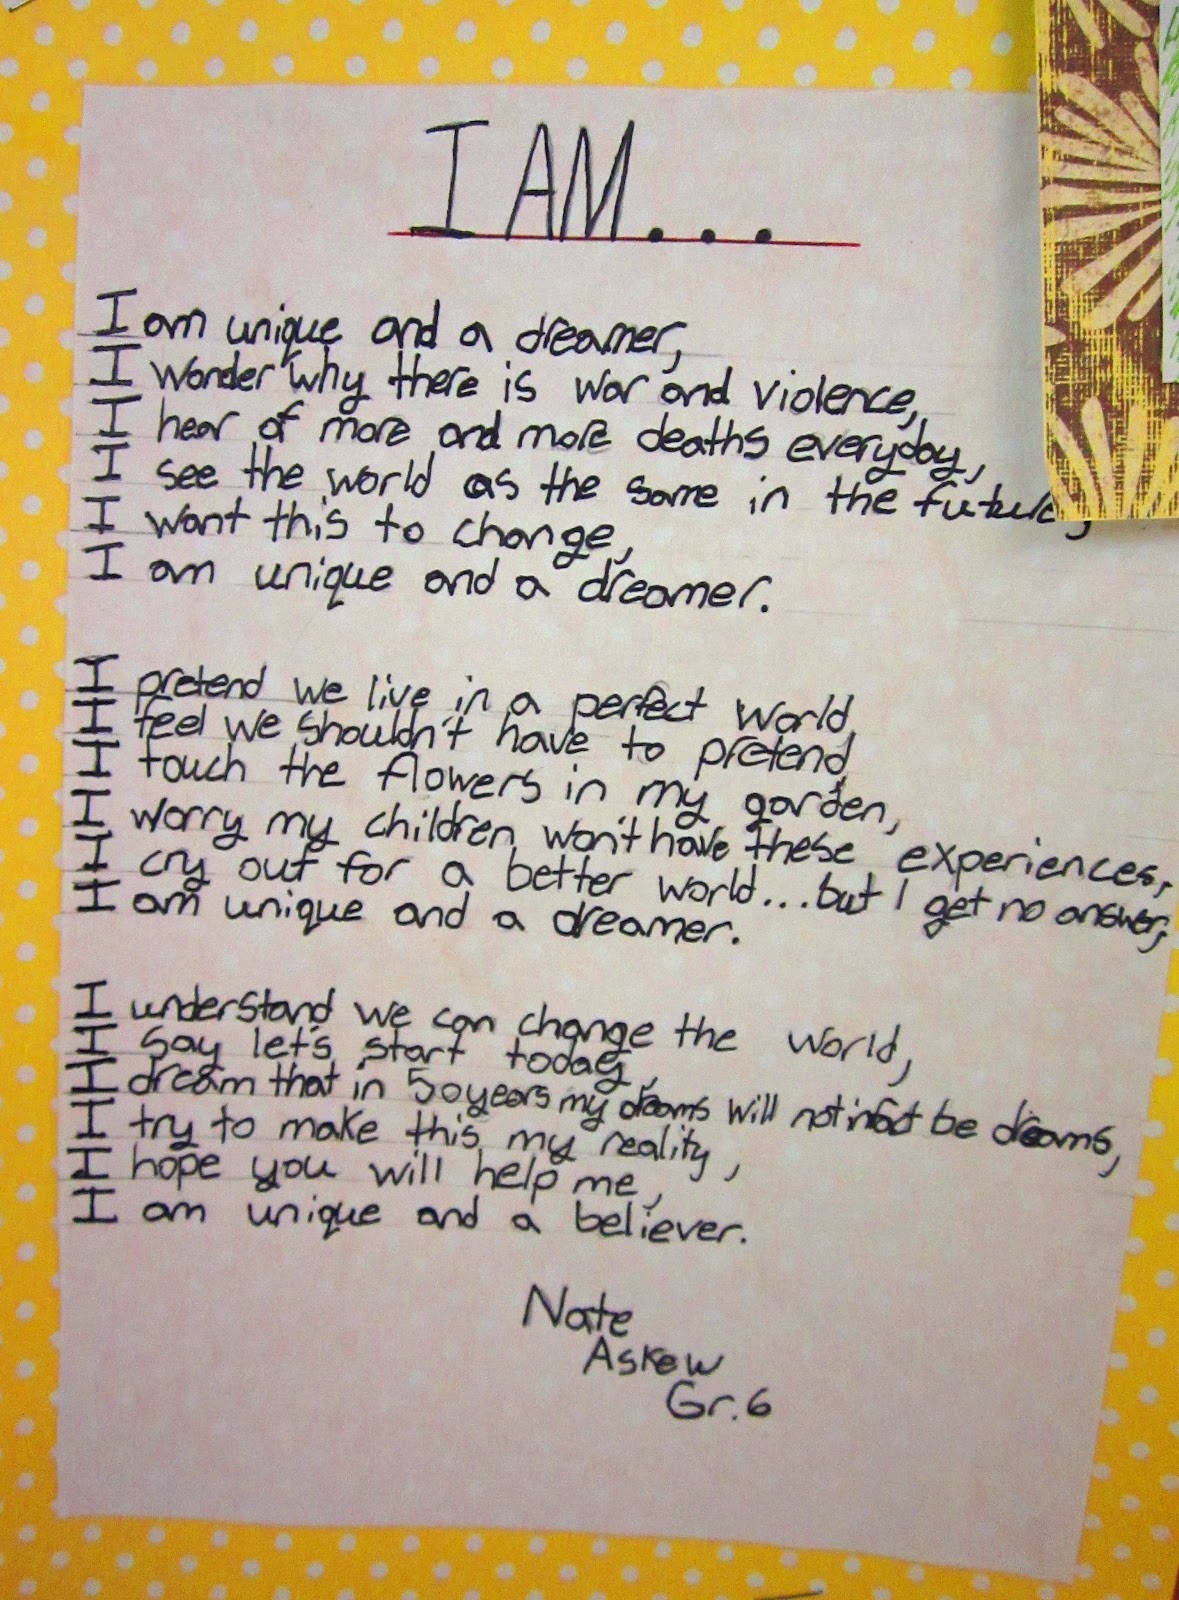 I AM...
I am unique and a dreamer,
I wonder why there is war and violence,
I hear of more and more deaths everyday,
I see the world as the same in the future,
I want this to change,
I am unique and a dreamer.
I pretend we live in a perfect world,
I feel we shouldn't have to pretend,
I touch the flowers in my garden,
I worry my children won't have these experiences,
I cry out for a better world...but I get no answer,
I am unique and a dreamer.
I understand we can change the world,
I say let's start today,
I dream that in 50 years my dreams will not infact be dreams,
I try to make this my reality,
I hope you will help me,
I am unique and a believer.
Nate
Askew
Gr. 6